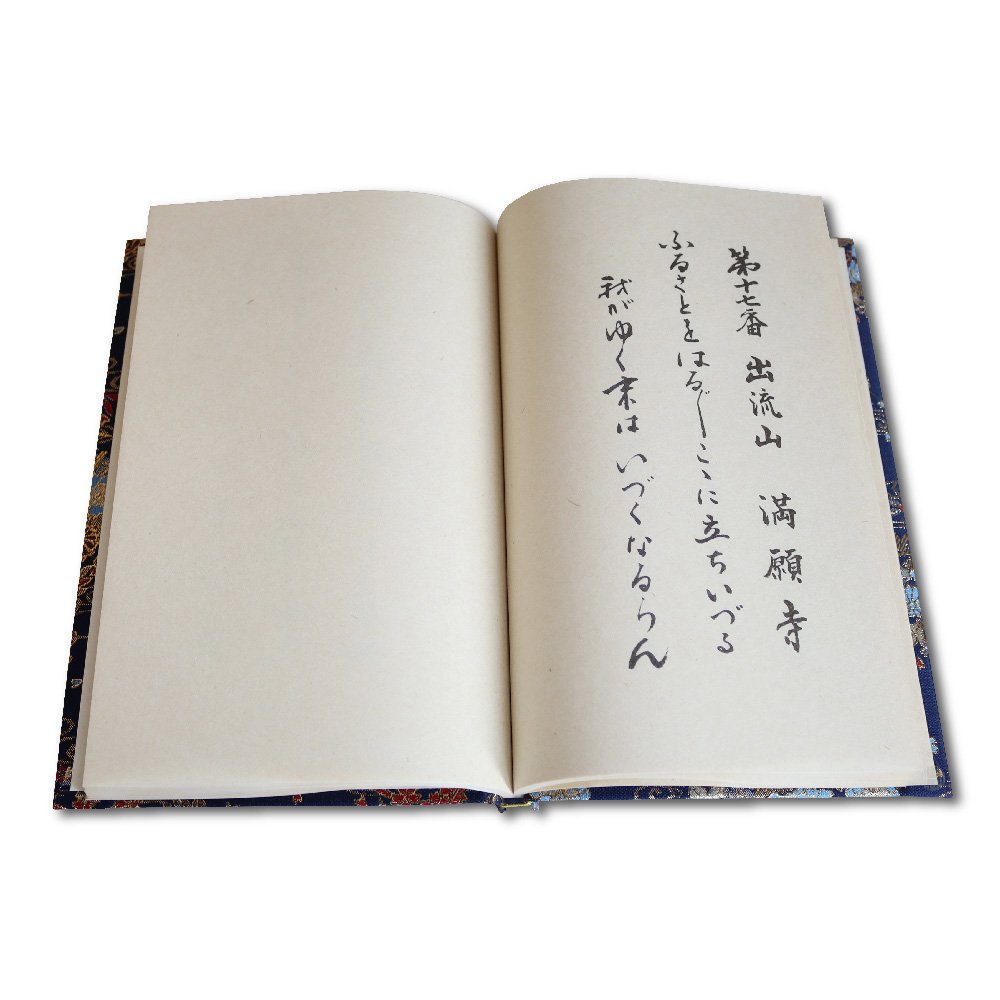 第十七番 出流山 満願寺
ふるさとをはるばるここに立ちいづる
我がゆく末はいづくなるらん